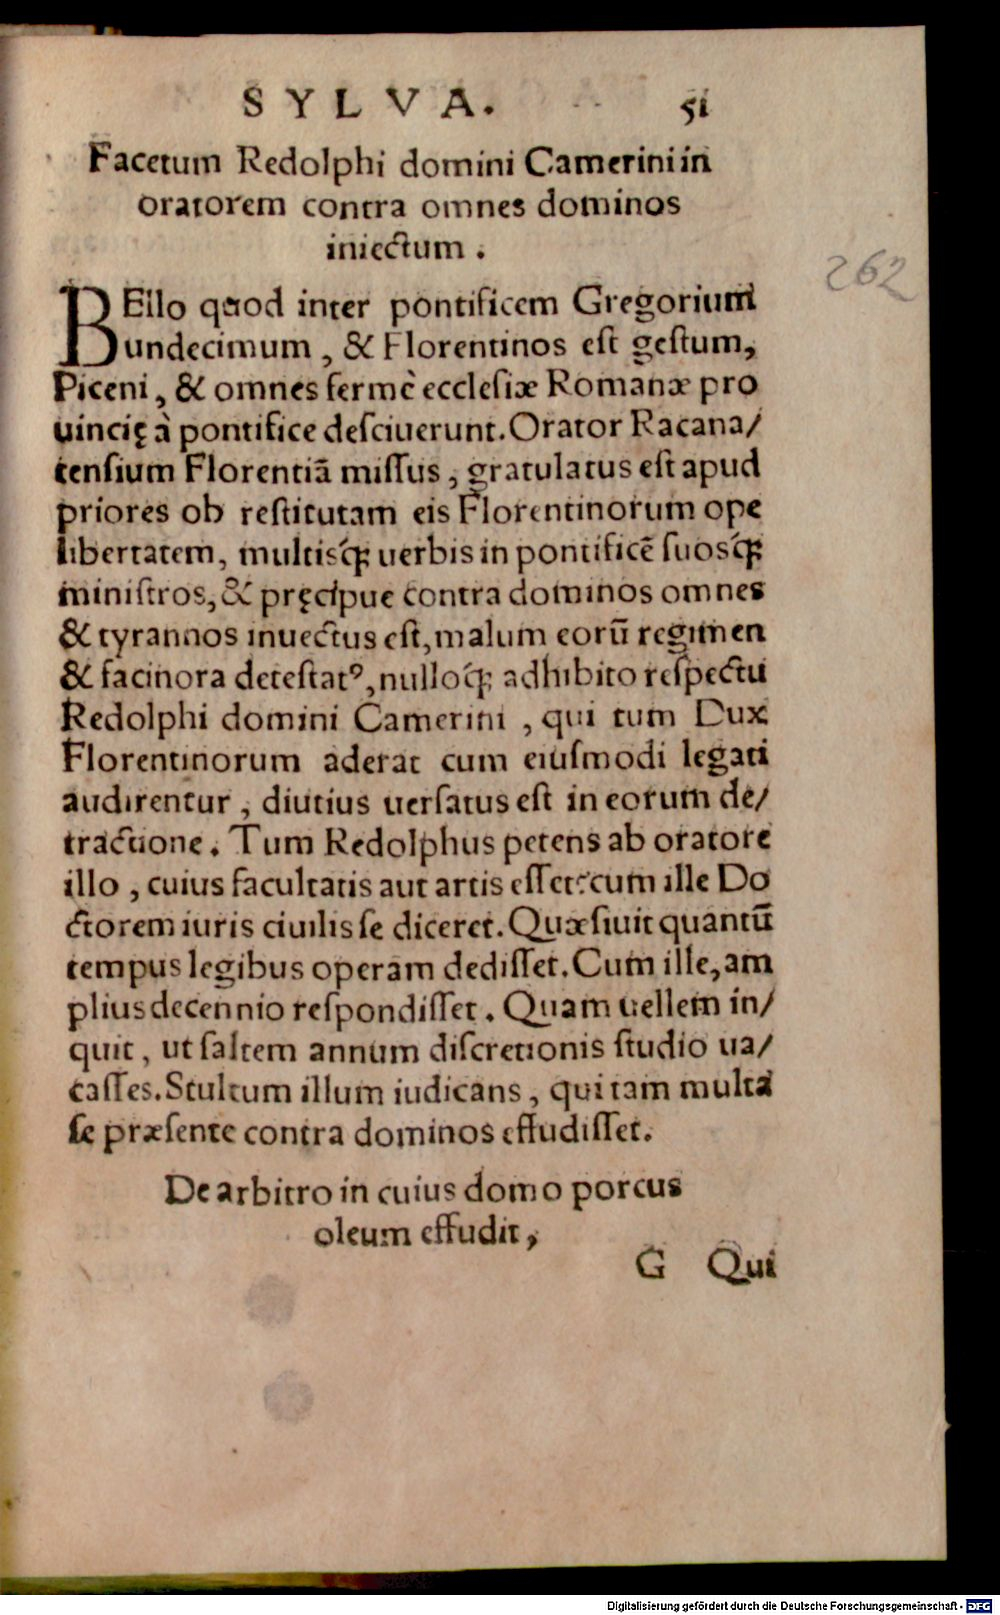 SYLVA. 51
Facetum Redolphi domini Camerini in
oratorem contra omnes dominos
iniectum .
BEllo quod inter pontificem Gregorium
undecimum , & Florentinos est gestum,
Piceni, & omnes fermè ecclesiæ Romanæ pro
uincię à pontifice desciuerunt. Orator Racana/
tensium Florentiā missus, gratulatus est apud
priores ob restitutam eis Florentinorum ope
libertatem, multisq́; uerbis in pontificē suosq́;
ministros, & pręcipue contra dominos omnes
& tyrannos inuectus est, malum eorū regimen
& facinora detestatꝰ, nulloq́; adhibito respectu
Redolphi domini Camerini , qui tum Dux
Florentinorum aderat cum eiusmodi legati
audirentur , diutius uersatus est in eorum de/
tractione. Tum Redolphus petens ab oratore
illo , cuius facultatis aut artis esset: cum ille Do
ctorem iuris ciuilis se diceret. Quæsiuit quantū
tempus legibus operam dedisset. Cum ille, am
plius decennio respondisset. Quam uellem in/
quit , ut saltem annum discretionis studio ua/
casses. Stultum illum iudicans , qui tam multa
se præsente contra dominos effudisset.
De arbitro in cuius domo porcus
oleum effudit,
G Qui
262
Digitalisierung gefördert durch die Deutsche Forschungsgemeinschaft - DFG